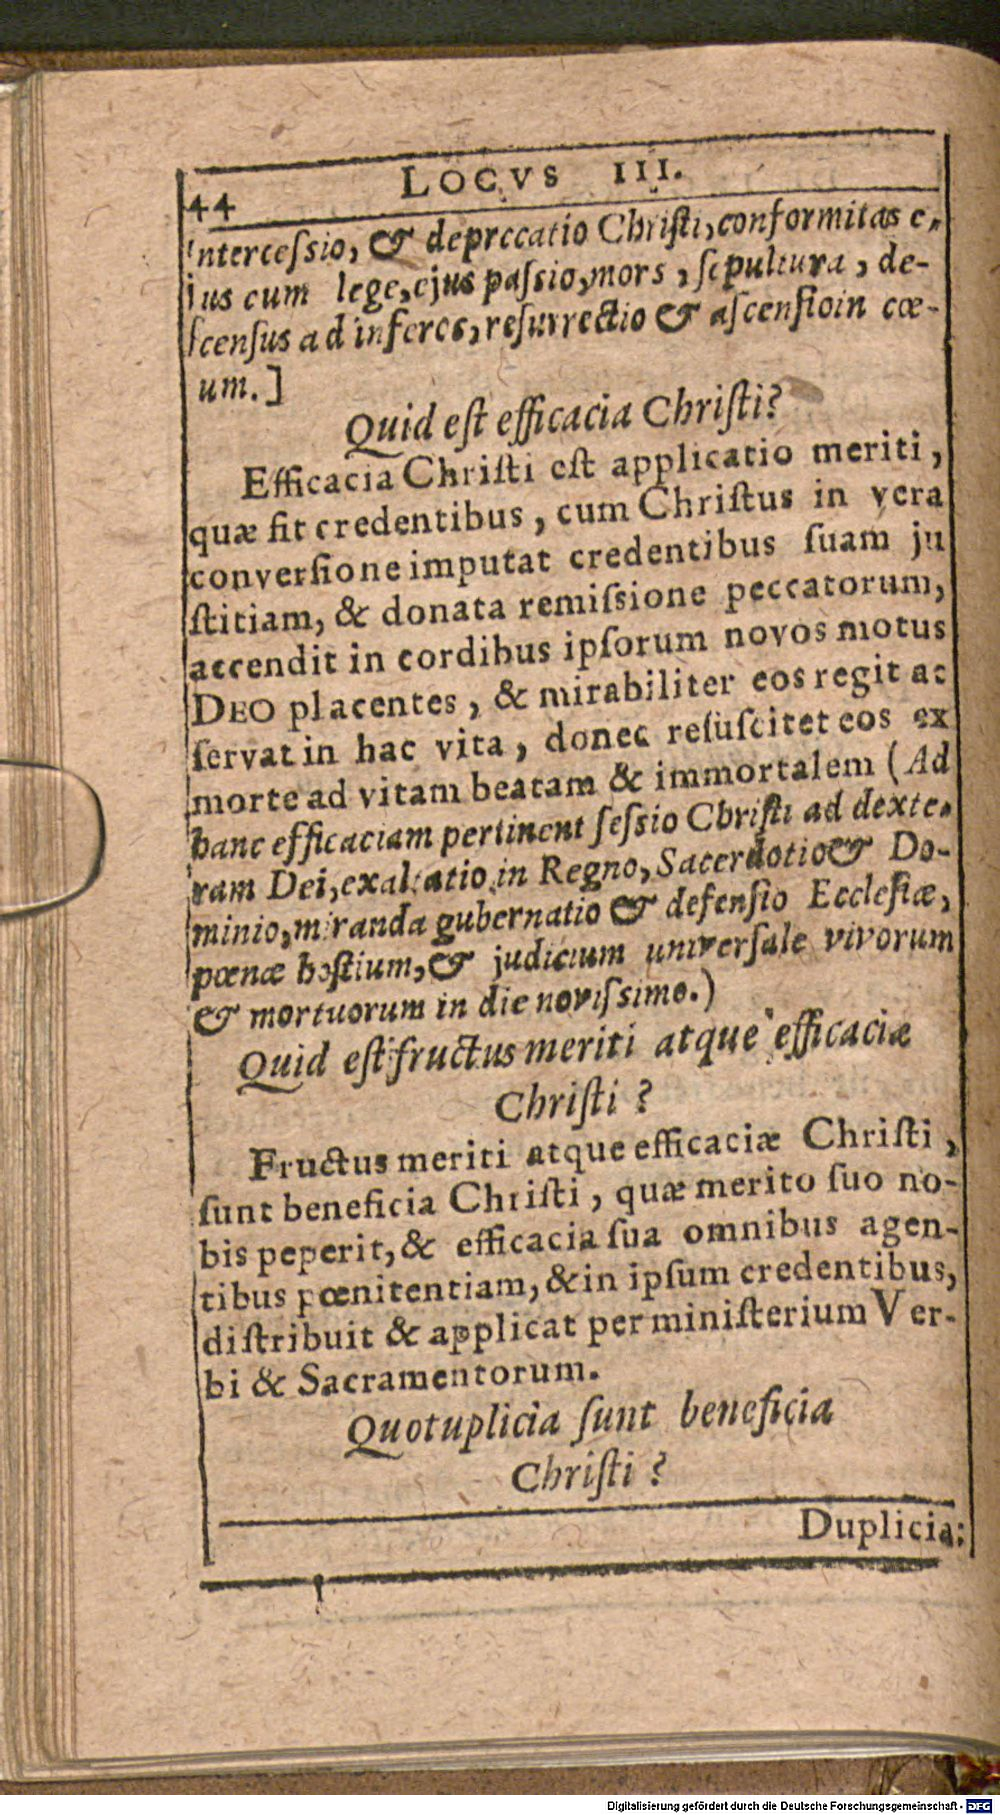 44 LOCVS III.
intercesſio, & deprecatio Chriſti, conformitas e-
jus cum lege, ejus paſsio, mors, ſepultura, de-
ſcenſus ad inferos, reſurrectio & aſcenſio in cœ-
um.]
Quid eſt efficacia Chriſti?
Efficacia Chriſti eſt applicatio meriti,
quæ fit credentibus, cum Chriſtus in vera
converſione imputat credentibus ſuam ju
ſtitiam, & donata remiſsione peccatorum,
accendit in cordibus ipſorum novos motus
DEO placentes, & mirabiliter eos regit ac
ſervat in hac vita, donec reſuſcitet eos ex
morte ad vitam beatam & immortalem (Ad
hanc efficaciam pertinent ſeſsio Chriſti ad dexte-
ram Dei, exaltatio in Regno, Sacerdotio & Do-
minio, miranda gubernatio & defenſio Eccleſiæ,
pœnæ hoſtium, & judicium univerſale vivorum
& mortuorum in die noviſsimo.)
Quid eſt fructus meriti atque efficaciæ
Chriſti?
Fructus meriti atque efficaciæ Chriſti,
ſunt beneficia Chriſti, quæ merito ſuo no-
bis peperit, & efficacia ſua omnibus agen-
tibus pœnitentiam, & in ipſum credentibus,
diſtribuit & applicat per miniſterium Ver-
bi & Sacramentorum.
Quotuplicia ſunt beneficia
Chriſti?
Duplicia:
Digitalisierung gefördert durch die Deutsche Forschungsgemeinschaft - DFG